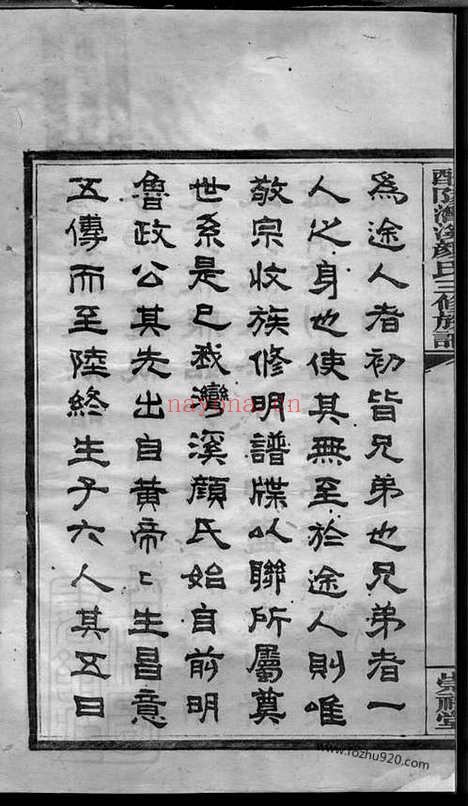 醴陵灣溪顏氏三修族譜
為途人者初皆兄弟也兄弟者一
人之身也使其無至於途人則唯
敬宗收族修明譜牒以聯所屬奠
世系是已我灣溪顏氏始自前明
魯政公其先出自黃帝〻生昌意
五傳而至陸終生子六人其五曰
nayona.cn
www.rozhu920.com